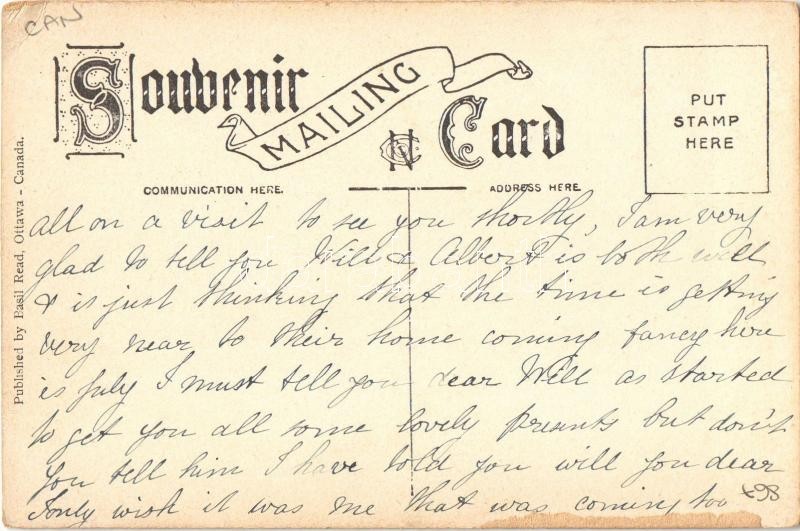 CAN
Souvenir MAILING Card
PUT
STAMP
HERE
COMMUNICATION HERE.
ADDRESS HERE.
Published by Basil Read, Ottawa - Canada.
all on a visit to see you shortly, I am very
glad to tell you Will & Albert is both well
& is just thinking that the time is getting
very near to their home coming fancy here
is July I must tell you dear Will as started
to get you all some lovely presents but don't
you tell him I have told you will you dear
I only wish it was me that was coming too